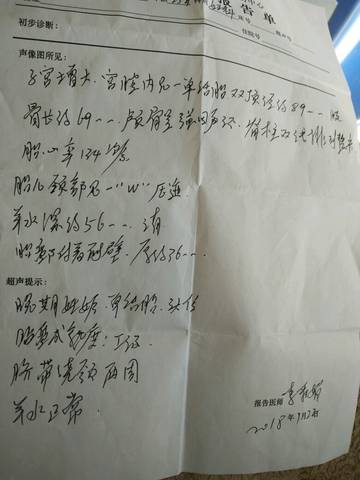 报告单
初步诊断：
声像图所见：
子宫增大，宫腔内见一单活胎，双顶径约89mm，股
骨长约69mm，颅骨呈强回声环，脊柱双光带排列整齐
胎心率134次/分
胎儿颈部见一"W"压迹
羊水深约56mm，清
胎盘附着前壁，厚约36mm
超声提示：
晚期妊娠，单活胎，头位
胎盘成熟度：I级
脐带绕颈两周
羊水正常
报告医师
2018年9月2日